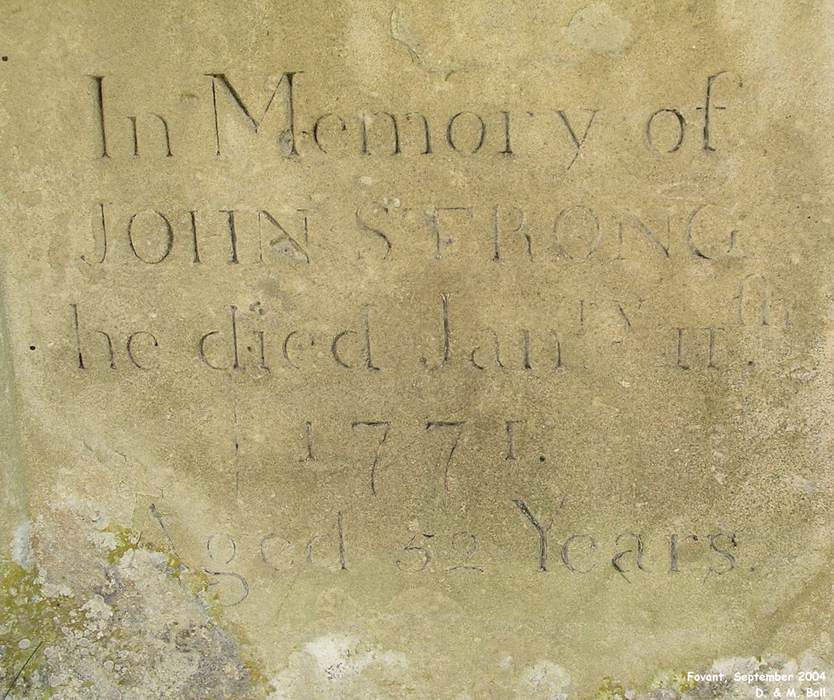 In Memory of
JOHN STRONG
he died Janry 11th.
1771.
Aged 52 Years.
Fovant, September 2004
D. & M. Ball